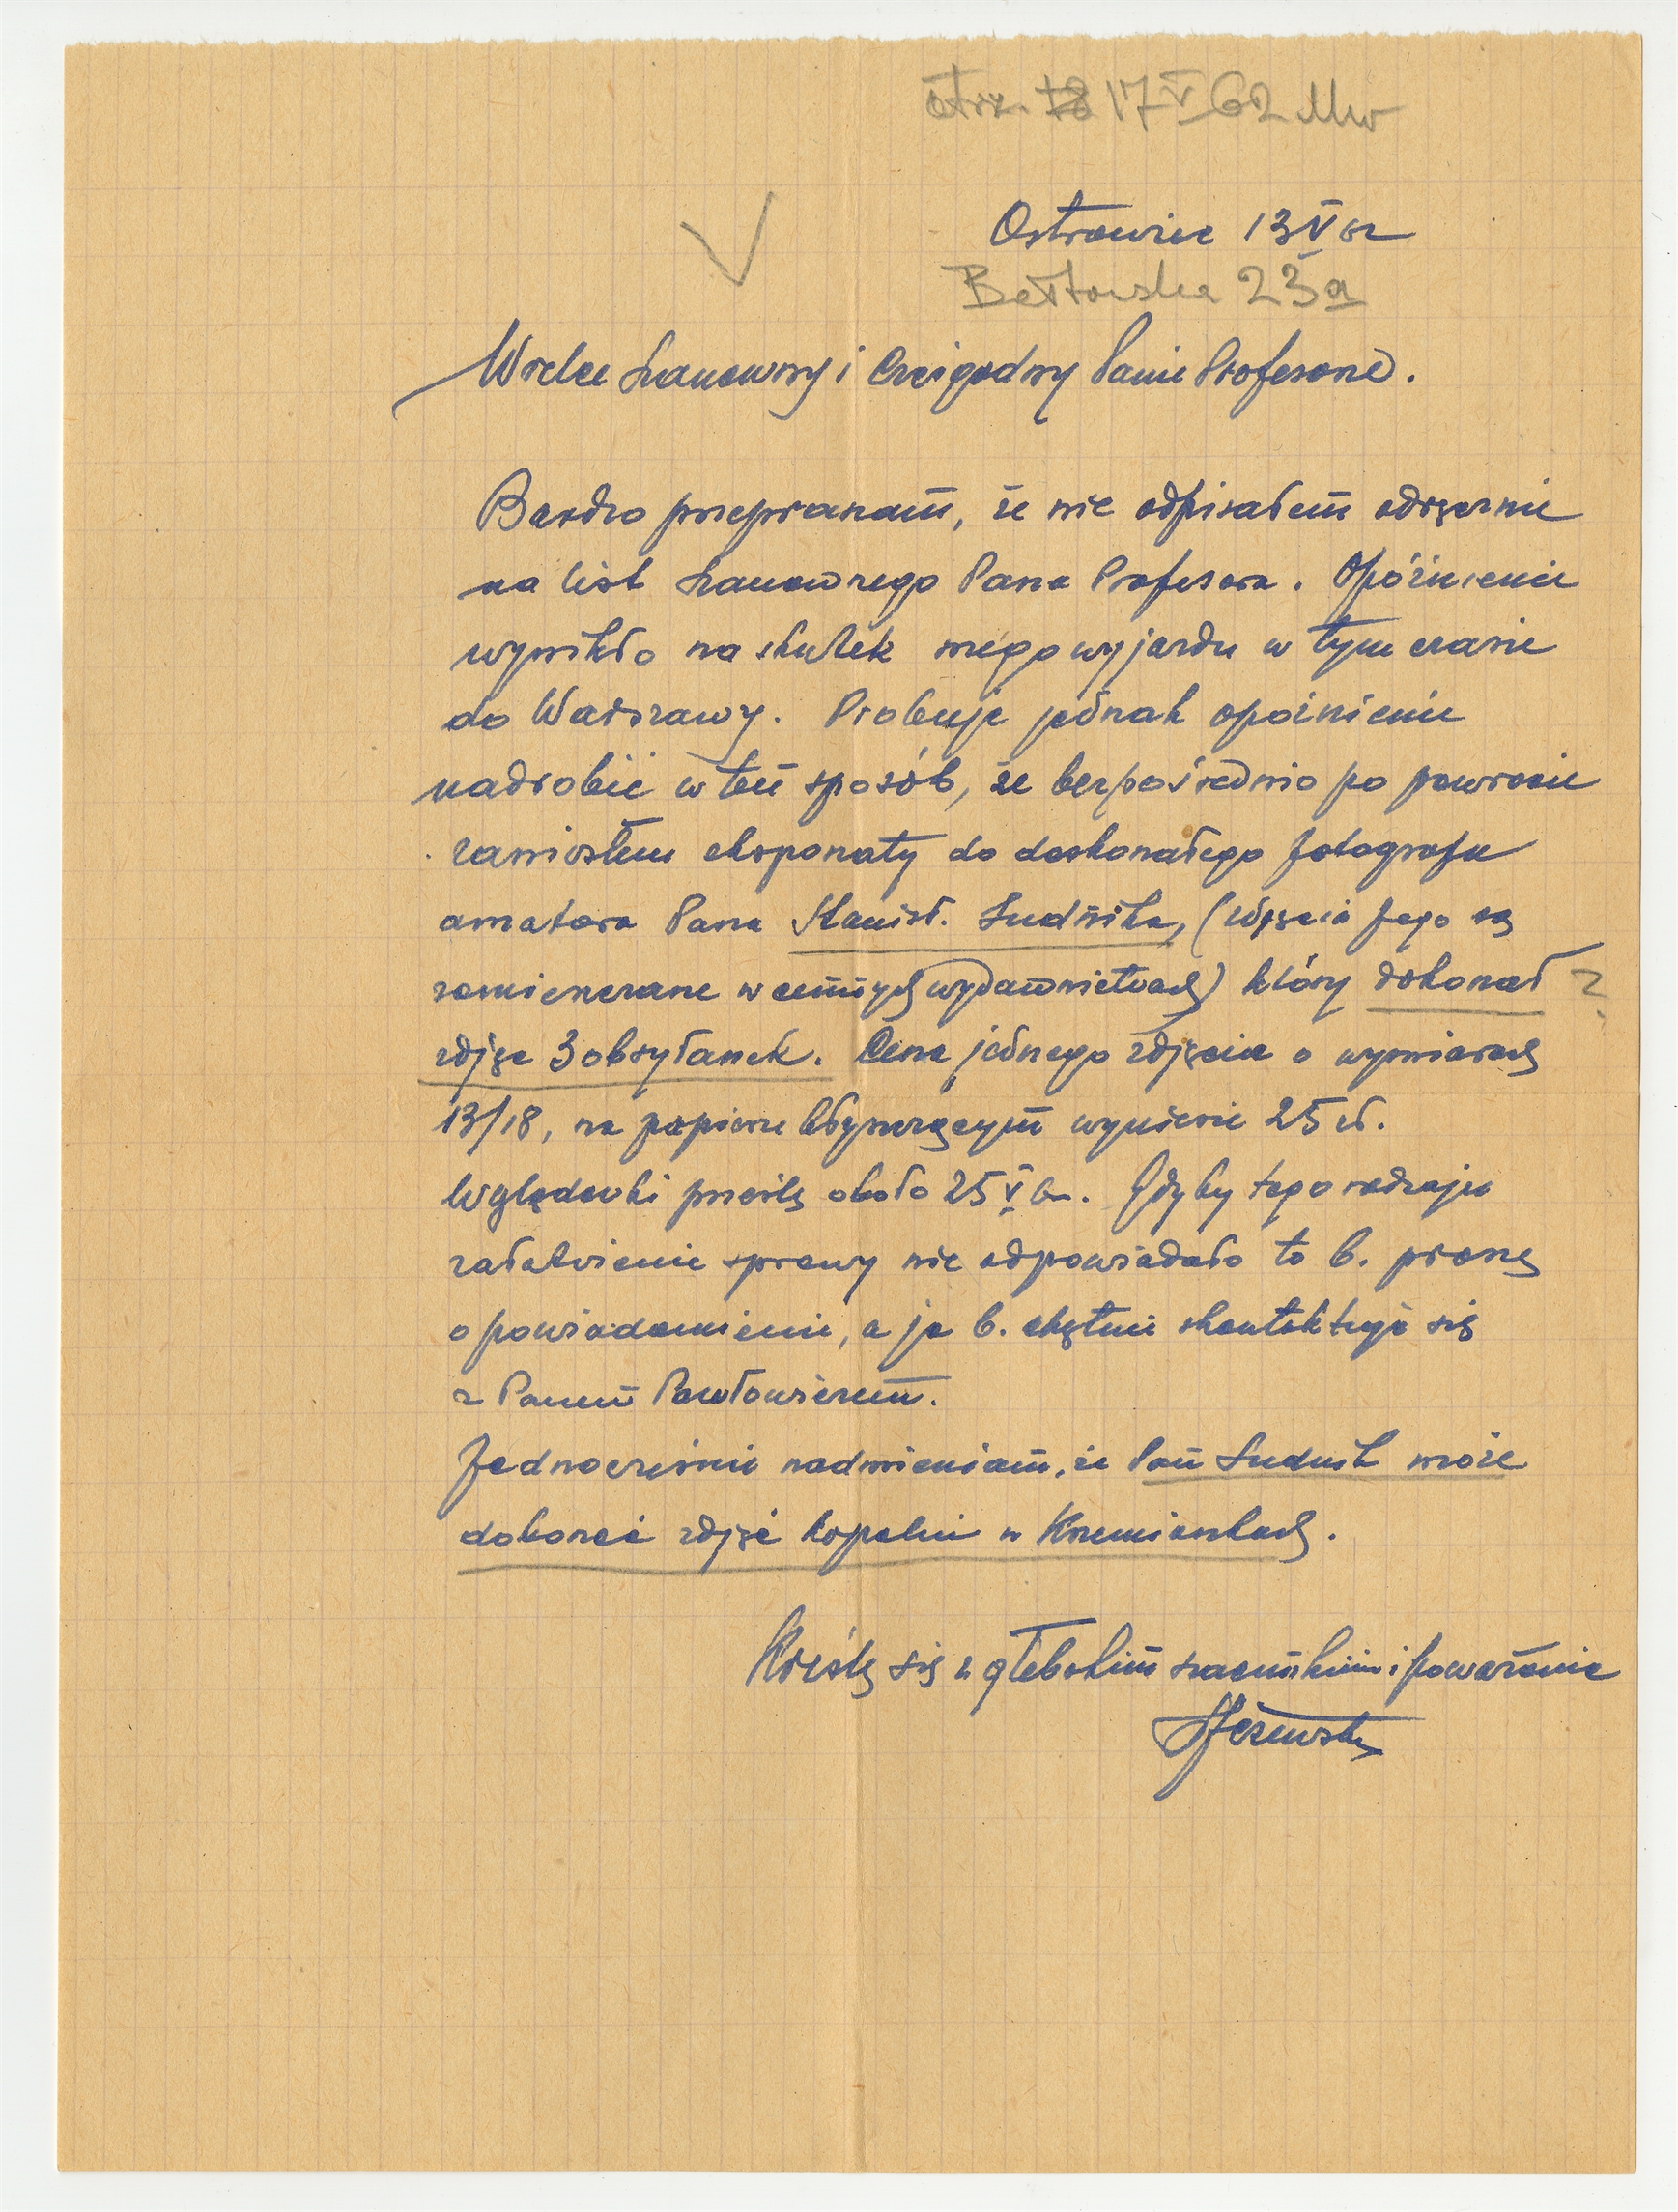 otrz. 18 17 V 62 Mw
Ostrowiec 13 V 62
Bałtowska 23a
Wielce Szanowny i Czcigodny Panie Profesorze.
Bardzo przepraszam, że nie odpisałem odręcznie
na list Szanownego Pana Profesora. Opóźnienie
wynikło na skutek mego wyjazdu w tym czasie
do Warszawy. Probuję jednak opóźnienie
nadrobić w ten sposób, że bezpośrednio po powrocie
zaniosłem eksponaty do doskonałego fotografa
amatora Pana Stanisł. Sudnika, (zdjęcia Jego są
zamieszczane w cennych wydawnictwach) który dokonał ?
zdjęc 3 obsyłanek. Cena jednego zdjęcia o wymiarach
13/18, na papierze błyszczącym wyniesie 25 zł.
Względówki prześlę około 25 V br. Gdyby tego rodzaju
załatwienie sprawy nie odpowiadało to b. proszę
o powiadomienie, a ja b. chętnie skontaktuję się
z Panem Pawłowiczem.
Jednocześnie nadmieniam, że Pan Sudnik może
dokonać zdjęć kopalni w Krzemionkach.
Kreślę się z głębokim szacunkiem i poważanie